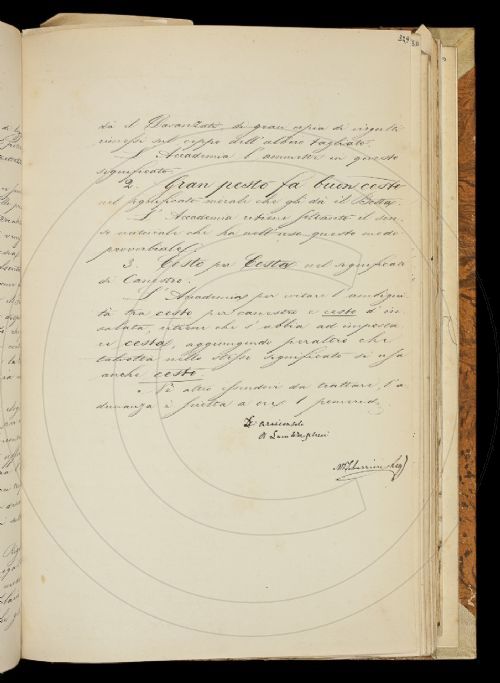 329 311
dà il Davanzati di gran copia di virgulti
rimessi sul ceppo dell'albero tagliato.
L'Accademia l'ammette in questo
significato.
2. Gran pesto fa buon cesto
nel significato morale che gli dà il Botta.
L'Accademia ritiene soltanto il sen-
so naturale che ha nell'uso questo modo
proverbiale.
3. Cesto per Cesta nel significato
di Canestro.
L'Accademia per evitare l'ambigui-
tà tra cesto per canestro e cesto d'in-
salata, ritiene che s'abbia ad imposta-
re cesta, aggiungendo peraltro che
talvolta nello stesso significato si usa
anche cesto.
Nè altro essendovi da trattare l'a-
dunanza è sciolta a ore 1 pomerid.
L'Arciconsolo